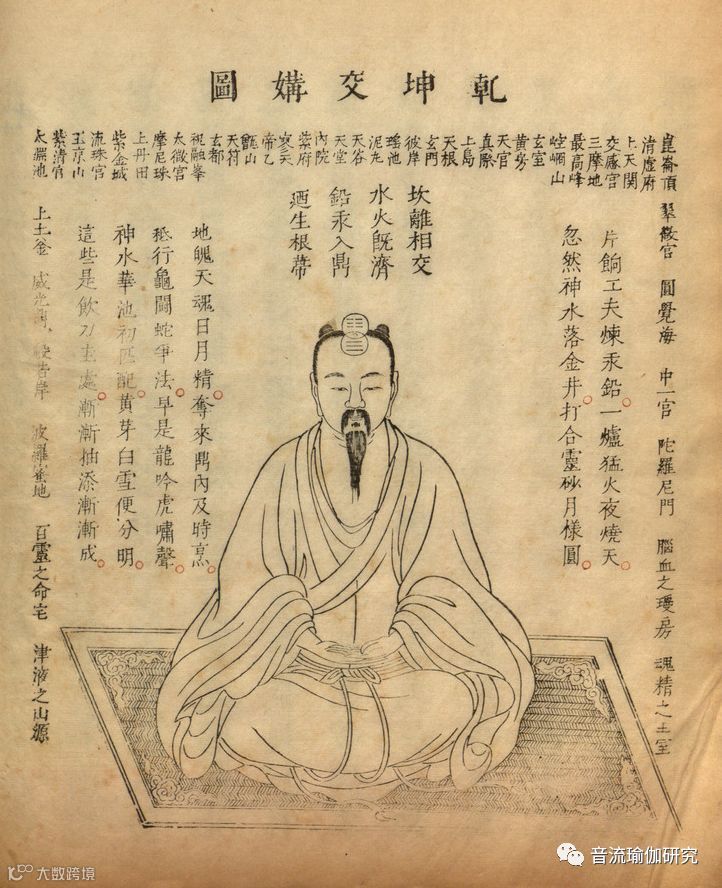 乾坤交媾圖
崑崙頂
清虛府
上天關
交感宮
三摩地
最高峰
崆峒山
玄室
黃房
天宮
真際
上島
天根
玄門
彼岸
瑤池
泥丸
天谷
天堂
內院
紫府
寥天
帝乙
甑山
天符
玄都
祝融峯
太微宮
摩尼珠
上丹田
紫金城
流珠宮
玉京山
紫清宮
太淵池
翠微宮 圓覺海 中一宮 陀羅尼門 腦血之瓊房 魂精之玉室
片餉工夫煉汞鉛。一爐猛火夜燒天。
忽然神水落金井。打合靈砂月樣圓。
坎離相交
水火既濟
鉛汞入鼎
迺生根蒂
地魄天魂日月精。奪來鼎內及時烹。
秪行龜鬪蛇爭法。早是龍吟虎嘯聲。
神水華池初匹配。黃芽白雪便分明。
這些是飲刀圭處。漸漸抽添漸漸成。
上土釜 威光鼎 般若岸 波羅蜜地 百靈之命宅 津液之山源
音流瑜伽研究
大数跨境